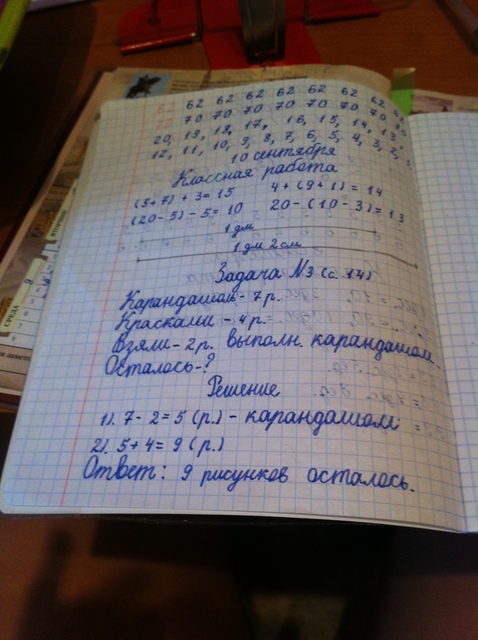 62 62 62 62 62 62 62 62 62
70 70 70 70 70 70 70 70 70
20, 19, 18, 17, 16, 15, 14, 13,
12, 11, 10, 9, 8, 7, 6, 5, 4, 3, 2,
10 сентября
Классная работа
(5+7) + 3 = 15 4 + (9+1) = 14
(20-5) - 5 = 10 20 - (10-3) = 13
1 дм
1 дм 2 см
Задача №3 (с. 14)
Карандашом - 7 р.
Красками - 4 р.
Взяли - 2 р. выполн. карандашом.
Осталось - ?
Решение
1). 7 - 2 = 5 (р.) - карандашом
2). 5 + 4 = 9 (р.)
Ответ: 9 рисунков осталось.
СРЕДА